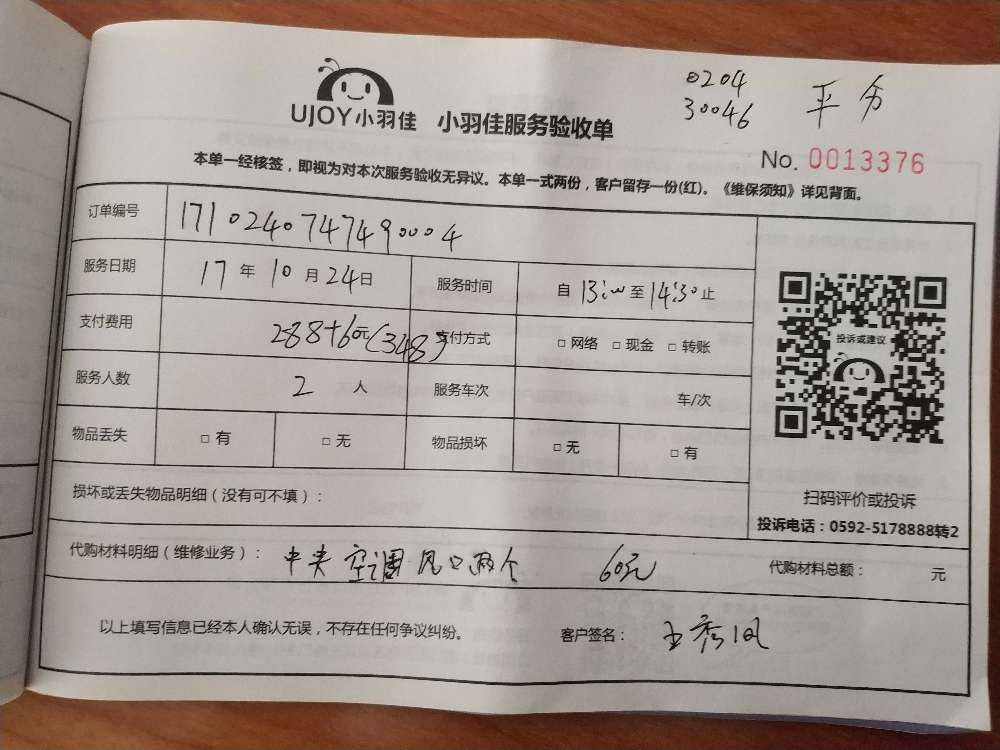 0204
30046
平
UJOY小羽佳 小羽佳服务验收单
No. 0013376
本单一经核签，即视为对本次服务验收无异议。本单一式两份，客户留存一份(红)。《维保须知》详见背面。
订单编号 1710240747490004
服务日期 17 年 10 月 24 日 服务时间 自 13:00 至 14:30 止
支付费用 288+60元(348) 支付方式 □ 网络 □ 现金 □ 转账
服务人数 2 人 服务车次 车/次
物品丢失 □ 有 □ 无 物品损坏 □ 无 □ 有
投诉或建议
扫码评价或投诉
投诉电话：0592-5178888转2
损坏或丢失物品明细（没有可不填）：
代购材料明细（维修业务）： 中央空调风口两个 60元 代购材料总额： 元
以上填写信息已经本人确认无误，不存在任何争议纠纷。 客户签名： 王秀凤